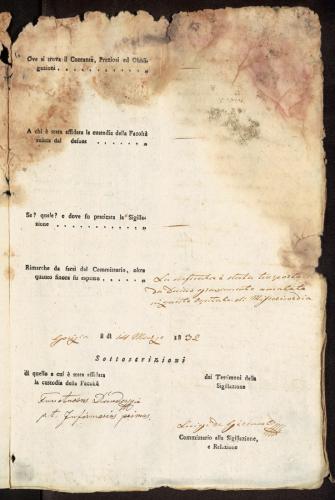 Ove si trova il Contante, Preziosi ed Obbli-
gazioni . . . . . . . . . . . . . . „
A chi è stata affidata la custodia della Facoltà
mista del defunt . . . . . . . . . . „
Se? quale? e dove fu praticata la Sigilla-
zione . . . . . . . . . . . . . . . . „
Rimarche da farsi dal Commissario, oltre
quanto finora fu esposto . . . . . . „
La defunta è stata trasportata
da Duino gravemente ammalata
Ospitale di Misericordia
Gorizia a dì 14 Marzo 1832
Sottoscrizioni
di quello a chi è stata affidata
la custodia della Facoltà
dai Testimoni della
Sigillazione
p.t. Infermaria primar
Luigi de
Commissario alla Sigillazione,
e Relazione